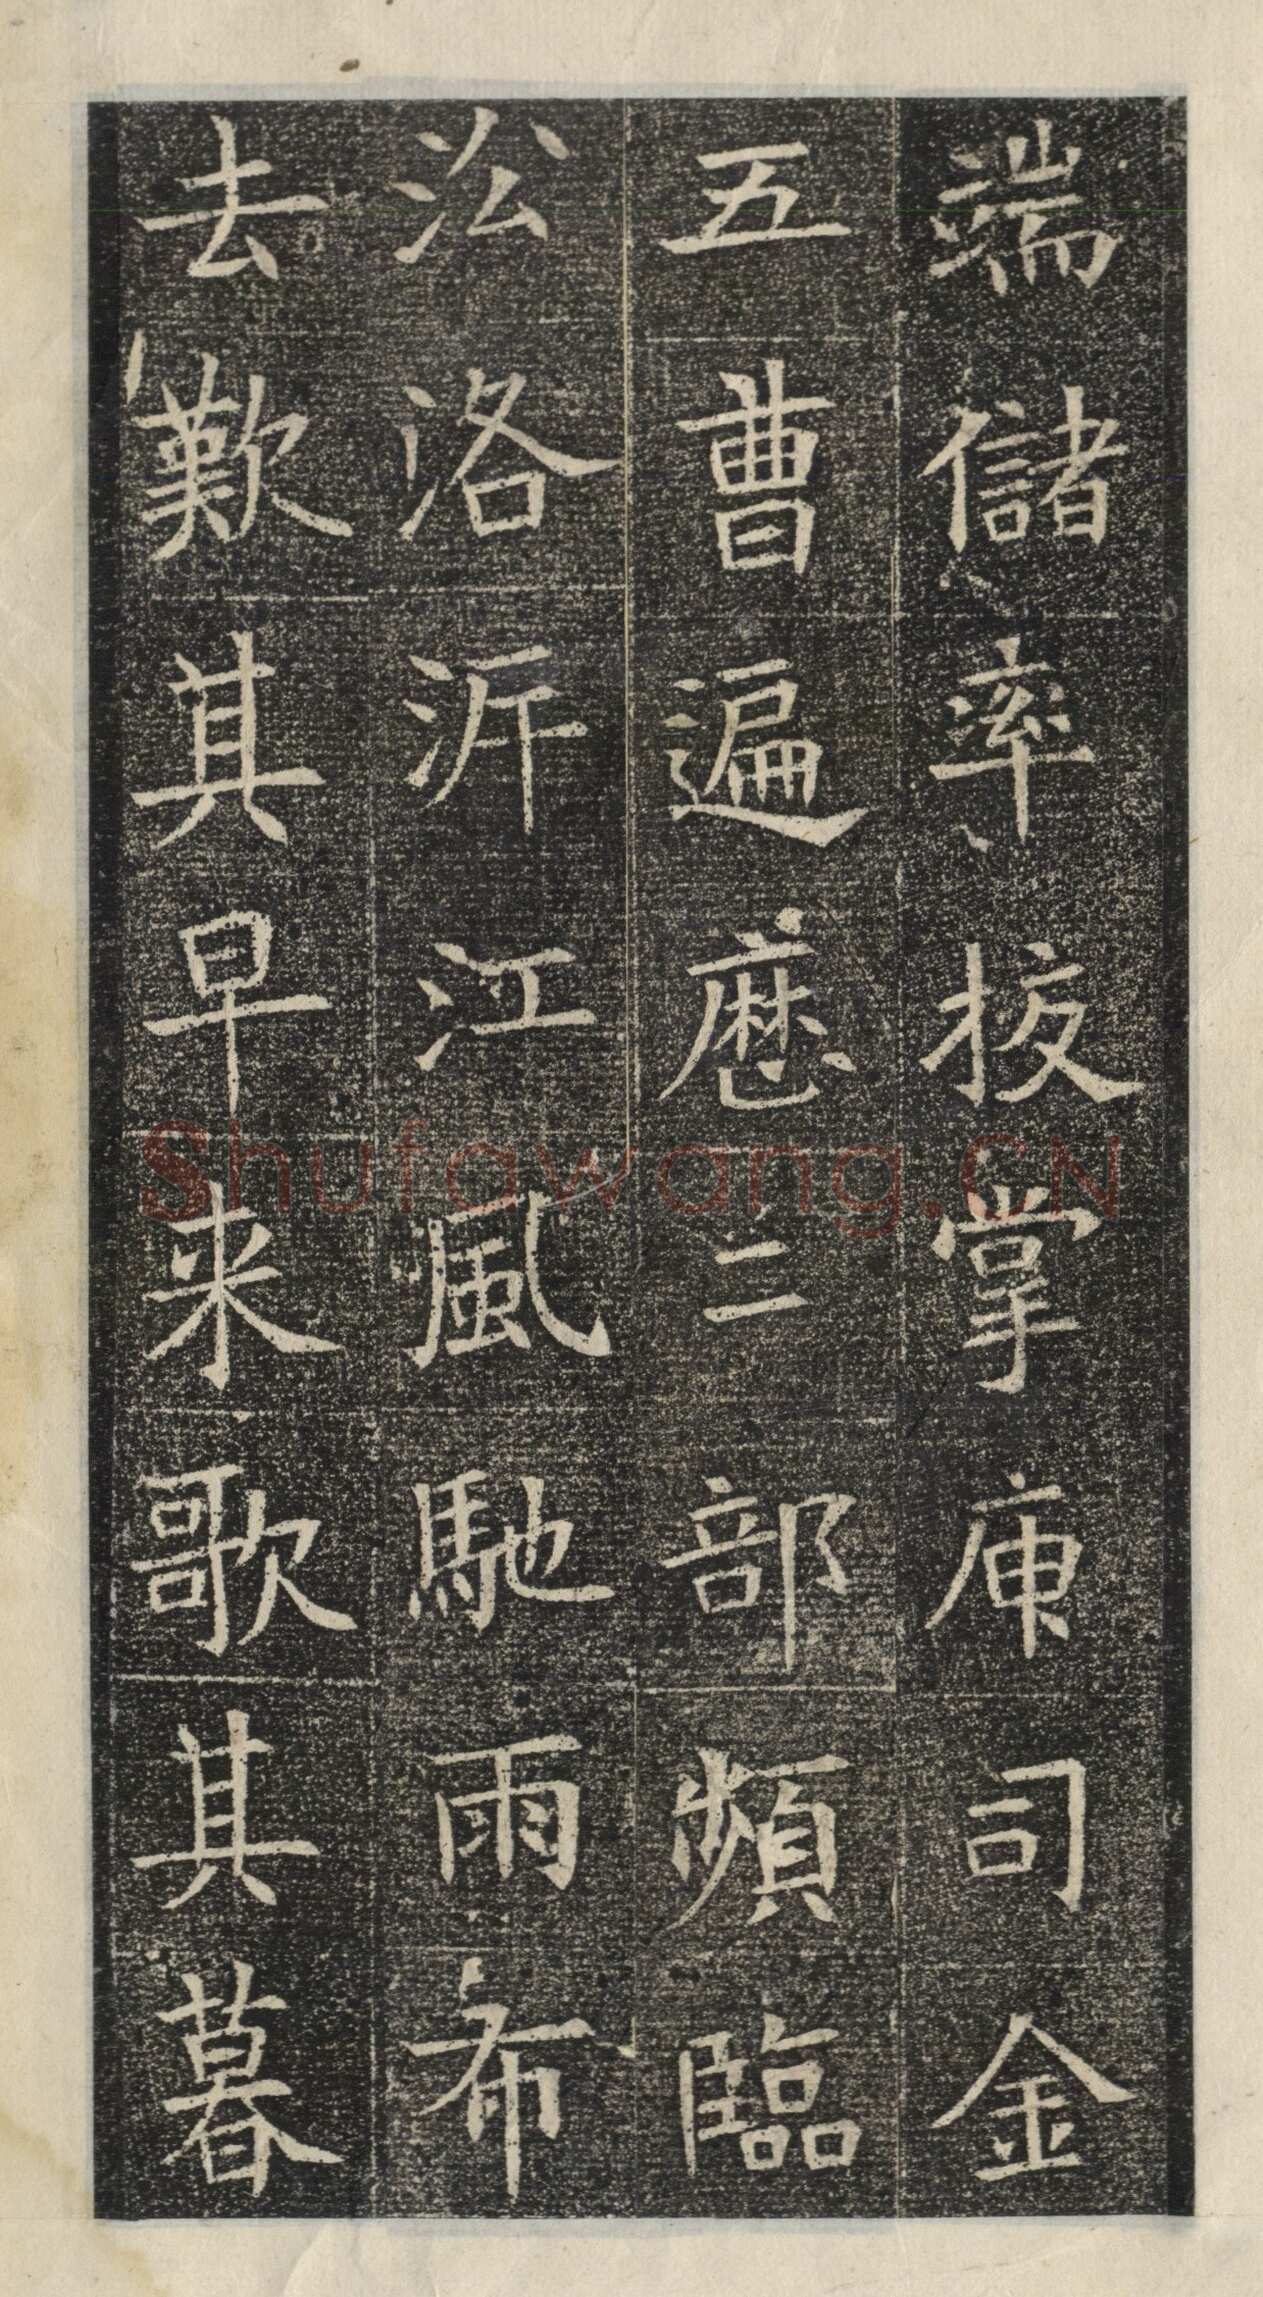 端儲率掾掌庾司金
五曹遍歷二部頻臨
㳂洛泝江風馳雨布
去歎其早来歌其暮
Shufawang.CN